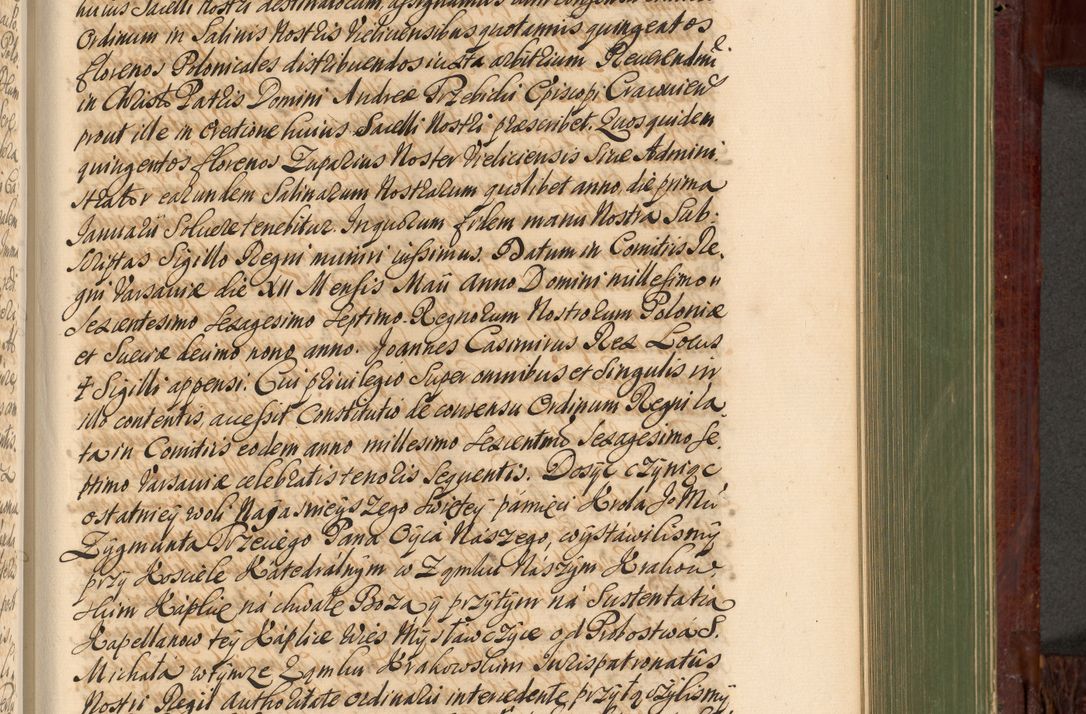 huius Sacelli Nostri destinatorum, assignamus
Ordinum in Salinis Nostris Vieliciensibus quotannis quingentos
florenos Polonicales distribuendos iuxta arbitrium Reverendmi
in Christo Patris Domini Andreæ Trzebicki Episcopi Cracovien
prout ille in erectione huius Sacelli Nostri præscribet. Quos quidem
quingentos florenos Zuparius Noster Vieliciensis Sive Admini,
strator earundem Salinarum Nostrarum quolibet anno, die prima
Januarii Solvere tenebitur. In quorum fidem manu Nostra Sub:
scriptas Sigillo Regni muniri iussimus. Datum in Comitiis Re,
gni Varsaviæ die XII Mensis Maii Anno Domini millesimo
Sexcentesimo Sexagesimo Septimo. Regnorum Nostrorum Poloniæ
et Sueciæ decimo nono anno. Joannes Casimirus Rex Locus
Sigilli appensi. Cui privilegio Super omnibus et Singulis in
illo contentis, accessit Constitutio de consensu Ordinum Regni la,
ta in Comitiis eodem anno millesimo Sexcentmo Sexagesimo Se,
ptimo Varsaviæ celebratis tenoris Sequentis. Dosyc czyniąc
ostatniey woli Nayasnieyszego Swiętey pamięci Krola Jo Mci
Zygmunta Trzeciego Pana Oyca Naszego, wystawilismy
przy Kosciele Katedralnym w Zamku Naszym Krakow,
skim Kaplicę ná chwałę Bozą y przytym ná Sustentatią
Kapellanow tey Kaplice Wies Mysławczyce od Probostwá S.
Michała w tymze Zamku Krakowskim Jurispatronatûs
Nostri Regii Authoritate ordinarii intercedente przyłączylismy